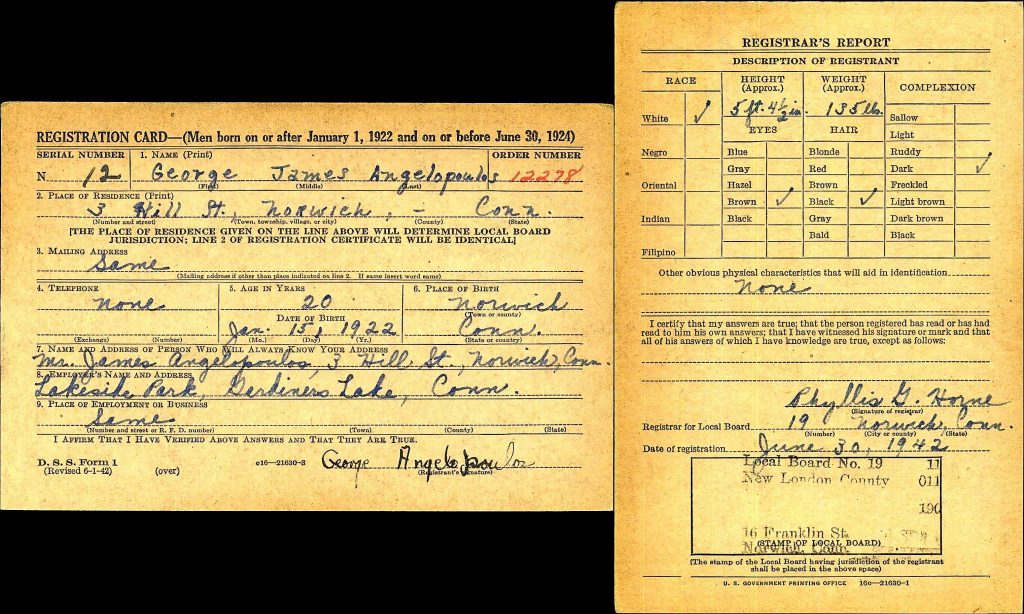 REGISTRATION CARD—(Men born on or after January 1, 1922 and on or before June 30, 1924)
SERIAL NUMBER 1. NAME (Print) ORDER NUMBER
N 12 George James Angelopoulos 12278
(First) (Middle) (Last)
2. PLACE OF RESIDENCE (Print)
3 Hill St., Norwich, - Conn.
(Number and street) (Town, township, village, or city) (County) (State)
[THE PLACE OF RESIDENCE GIVEN ON THE LINE ABOVE WILL DETERMINE LOCAL BOARD
JURISDICTION; LINE 2 OF REGISTRATION CERTIFICATE WILL BE IDENTICAL]
3. MAILING ADDRESS
Same
(Mailing address if other than place indicated on line 2. If same insert word same)
4. TELEPHONE 5. AGE IN YEARS 6. PLACE OF BIRTH
none 20 Norwich
DATE OF BIRTH (Town or county)
Jan. 15, 1922 Conn.
(Exchange) (Number) (Mo.) (Day) (Yr.) (State or country)
7. NAME AND ADDRESS OF PERSON WHO WILL ALWAYS KNOW YOUR ADDRESS
Mr. James Angelopoulos, 3 Hill St., Norwich, Conn.
8. EMPLOYER'S NAME AND ADDRESS
Lakeside Park, Gardiners Lake, Conn.
9. PLACE OF EMPLOYMENT OR BUSINESS
Same
(Number and street or R. F. D. number) (Town) (County) (State)
I AFFIRM THAT I HAVE VERIFIED ABOVE ANSWERS AND THAT THEY ARE TRUE.
D. S. S. Form 1
George Angelopoulos
(Revised 6-1-42) (over) e16—21630-3 (Registrant's signature)
REGISTRAR'S REPORT
DESCRIPTION OF REGISTRANT
RACE HEIGHT (Approx.) WEIGHT (Approx.) COMPLEXION
White ✓ 5 ft. 4½ in. 135 lbs. Sallow
EYES HAIR Light
Negro Blue Blonde Ruddy
Gray Red Dark ✓
Oriental Hazel Brown Freckled
Brown ✓ Black ✓ Light brown
Indian Black Gray Dark brown
Bald Black
Filipino
Other obvious physical characteristics that will aid in identification
None
I certify that my answers are true; that the person registered has read or has had
read to him his own answers; that I have witnessed his signature or mark and that
all of his answers of which I have knowledge are true, except as follows:
Phyllis G. Hozne
(Signature of registrar)
Registrar for Local Board 19 Norwich, Conn.
(Number) (City or county) (State)
Date of registration June 30, 1942
Local Board No. 19 11
New London County 011
190
16 Franklin St.
(STAMP OF LOCAL BOARD)
Norwich, Conn.
[The stamp of the Local Board having jurisdiction of the registrant
shall be placed in the above space)
U. S. GOVERNMENT PRINTING OFFICE 16c—21630-1